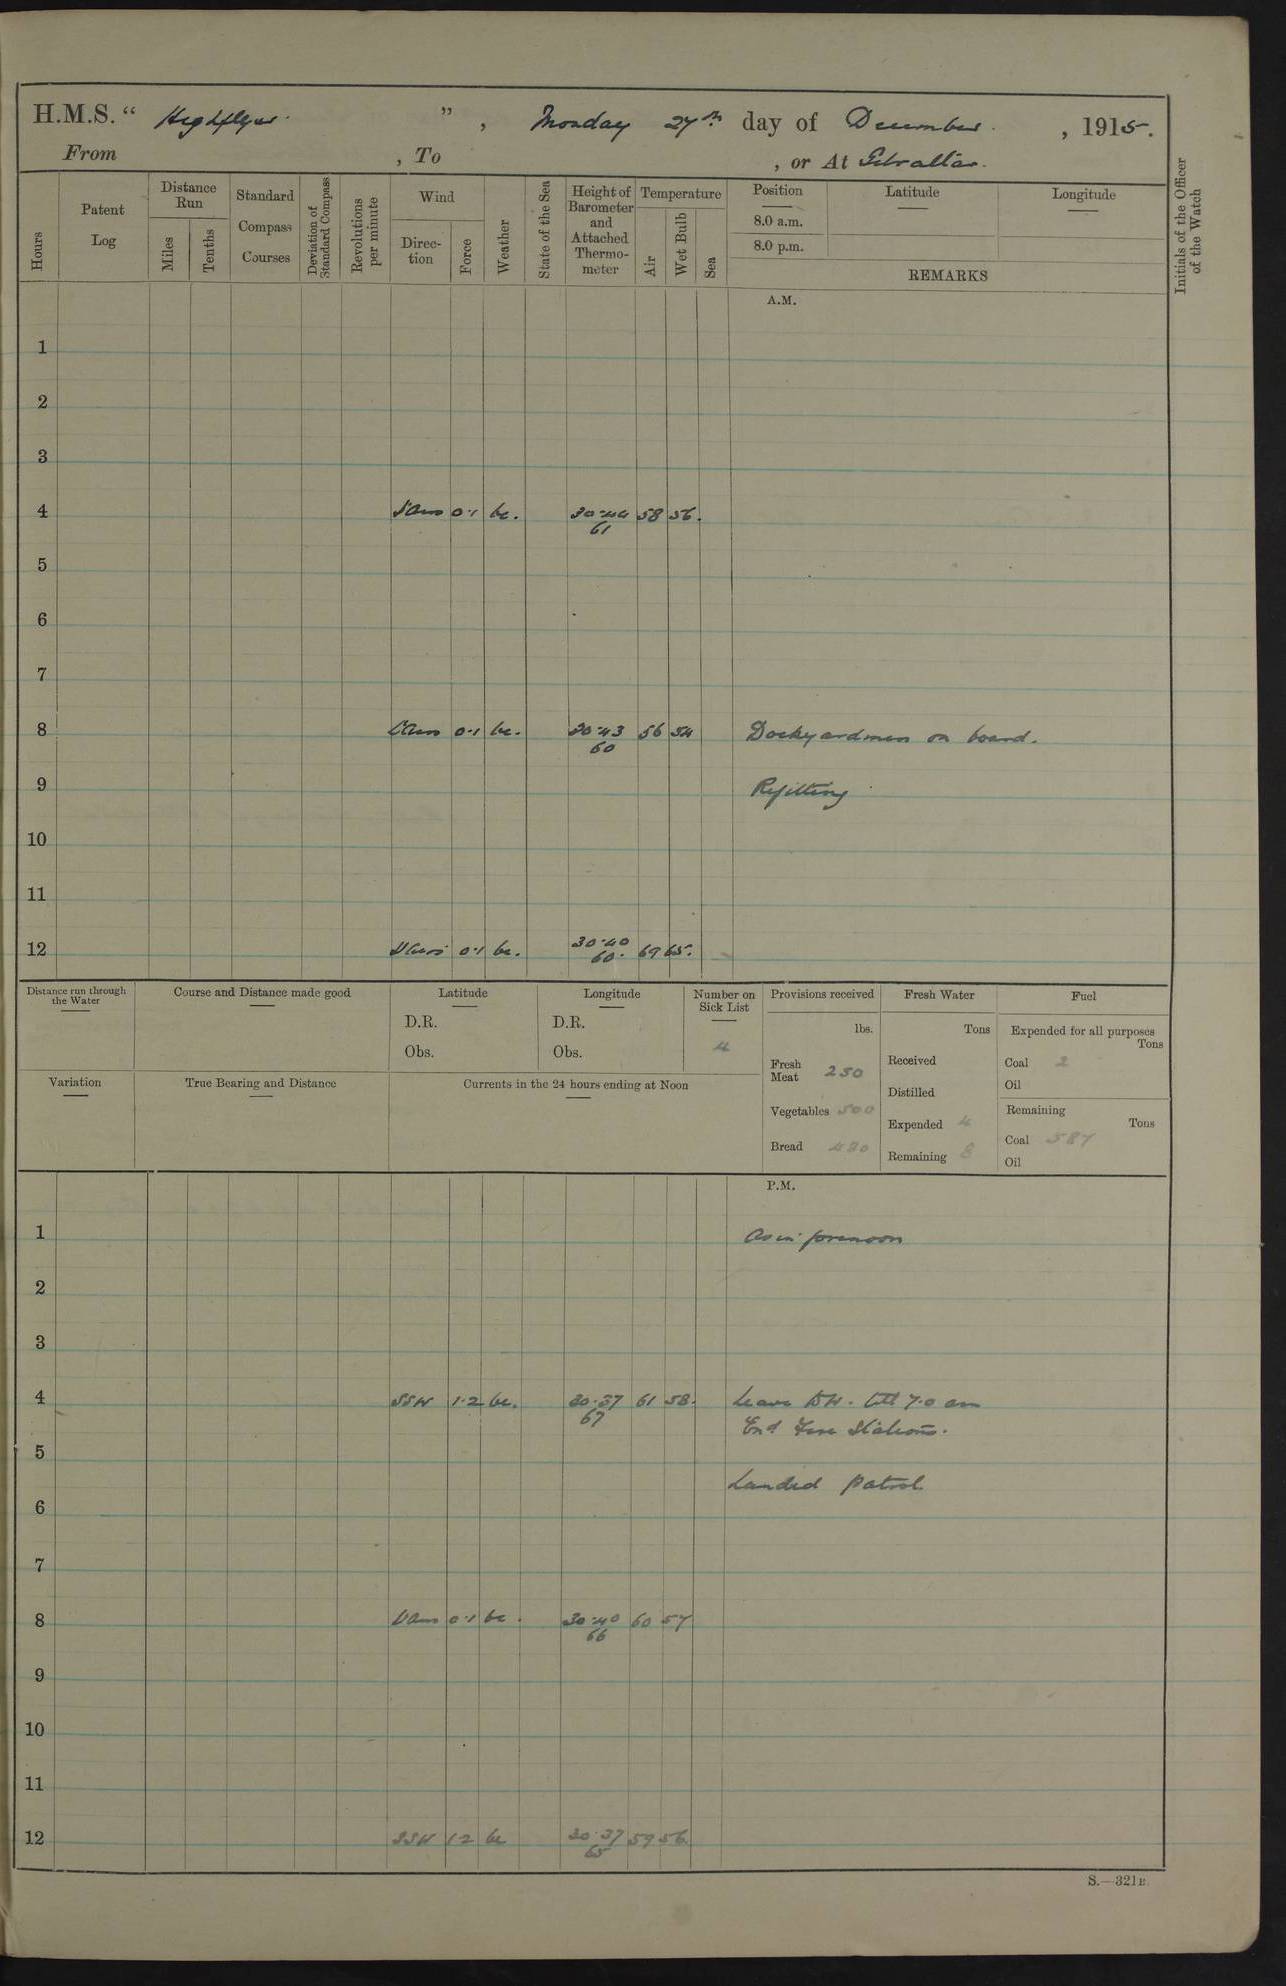 H.M.S. “ Highflyer. ” , Monday 27th day of December. , 1915.
From , To , or At Gibraltar.
Hours
Patent Log
Distance Run
Miles
Tenths
Standard Compass Courses
Deviation of Standard Compass
Revolutions per minute
Wind
Direc-tion
Force
Weather
State of the Sea
Height of Barometer and Attached Thermo-meter
Temperature
Air
Wet Bulb
Sea
Position
8.0 a.m.
8.0 p.m.
Latitude
Longitude
REMARKS
Initials of the Officer of the Watch
A.M.
1
2
3
4 0·1 bc. 30·44 58 56.
61
5
6
7
8 0·1 bc. 30·43 56 54 Dockyardmen on board.
60
9 Refitting
10
11
12 0·1 bc. 30·40 69 65.
60.
Distance run through the Water
Course and Distance made good
Latitude
D.R.
Obs.
Longitude
D.R.
Obs.
Number on Sick List
4
Provisions received
lbs.
Fresh Meat 250
Vegetables 500
Bread 480
Fresh Water
Tons
Received
Distilled
Expended 4
Remaining 8
Fuel
Expended for all purposes
Tons
Coal 2
Oil
Remaining
Tons
Coal 587
Oil
Variation
True Bearing and Distance
Currents in the 24 hours ending at Noon
P.M.
1 As in forenoon
2
3
4 SSW 1·2 bc. 30·37 61 58. Leave till 7·0 am
67
Exd Fire Stations.
5
Landed patrol.
6
7
8 0·1 bc. 30·40 60 57
66
9
10
11
12 SSW 1·2 bc 30·37 59 56.
65
S.—321B.